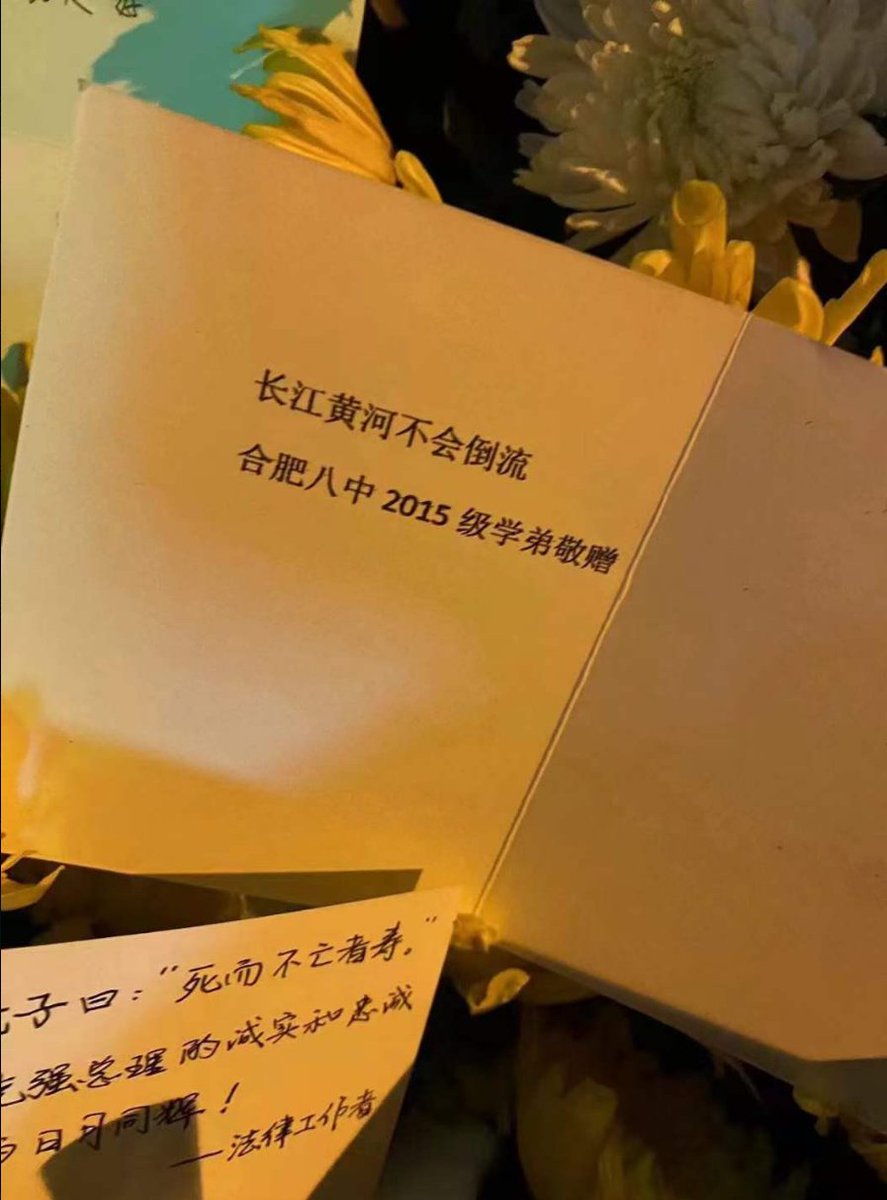 长江黄河不会倒流
合肥八中2015级学弟敬赠
子曰：“死而不亡者寿。”
强总理的诚实和忠诚
日月同辉！
——法律工作者